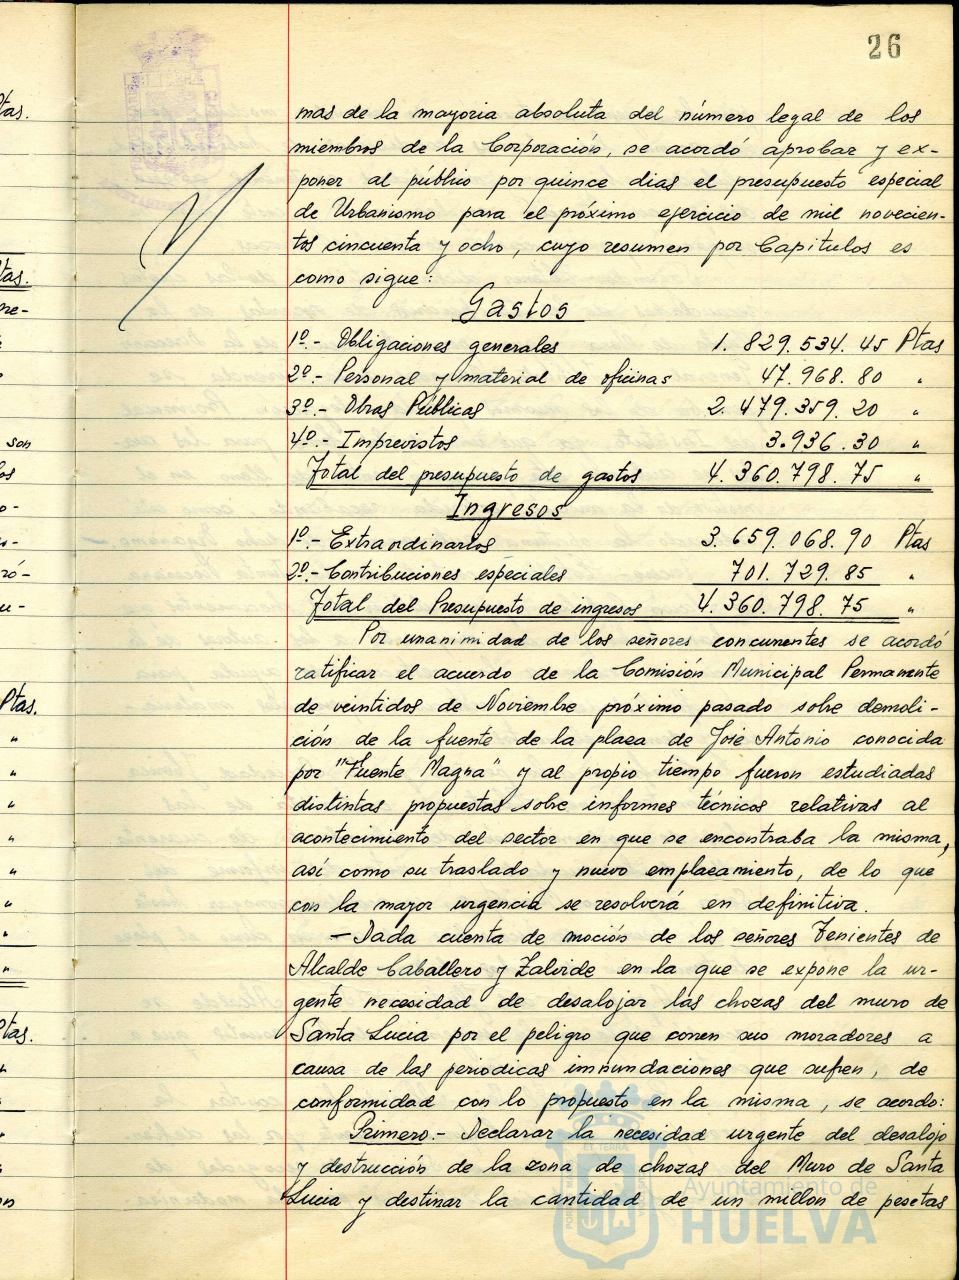 26
mas de la mayoria absoluta del número legal de los
miembros de la Corporación, se acordó aprobar y ex-
poner al públio por quince dias el presupuesto especial
de Urbanismo para el próximo ejercicio de mil novecien-
tos cincuenta y ocho, cuyo resumen por Capitulos es
como sigue:
Gastos
1º.- Obligaciones generales 1.829.534.45 Ptas
2º.- Personal y material de oficinas 47.968.80 "
3º.- Obras Públicas 2.479.359.20 "
4º.- Imprevistos 3.936.30 "
Total del presupuesto de gastos 4.360.798.75 "
Ingresos
1º.- Extraordinarios 3.659.068.90 Ptas
2º.- Contribuciones especiales 701.729.85 "
Total del Presupuesto de ingresos 4.360.798.75 "
Por unanimidad de los señores concurrentes se acordó
ratificar el acuerdo de la Comisión Municipal Permanente
de veintidos de Noviembre próximo pasado sobre demoli-
ción de la fuente de la plaza de José Antonio conocida
por "Fuente Magna" y al propio tiempo fueron estudiadas
distintas propuestas sobre informes técnicos relativas al
acontecimiento del sector en que se encontraba la misma,
así como su traslado y nuevo emplazamiento, de lo que
con la mayor urgencia se resolverá en definitiva.
- Dada cuenta de moción de los señores Tenientes de
Alcalde Caballero y Zalvide en la que se expone la ur-
gente necesidad de desalojar las chozas del muro de
Santa Lucia por el peligro que corren sus moradores a
causa de las periodicas innundaciones que sufren, de
conformidad con lo propuesto en la misma, se acordo:
Primero.- Declarar la necesidad urgente del desalojo
y destrucción de la zona de chozas del Muro de Santa
Lucia y destinar la cantidad de un millon de pesetas
Ayuntamiento de
HUELVA